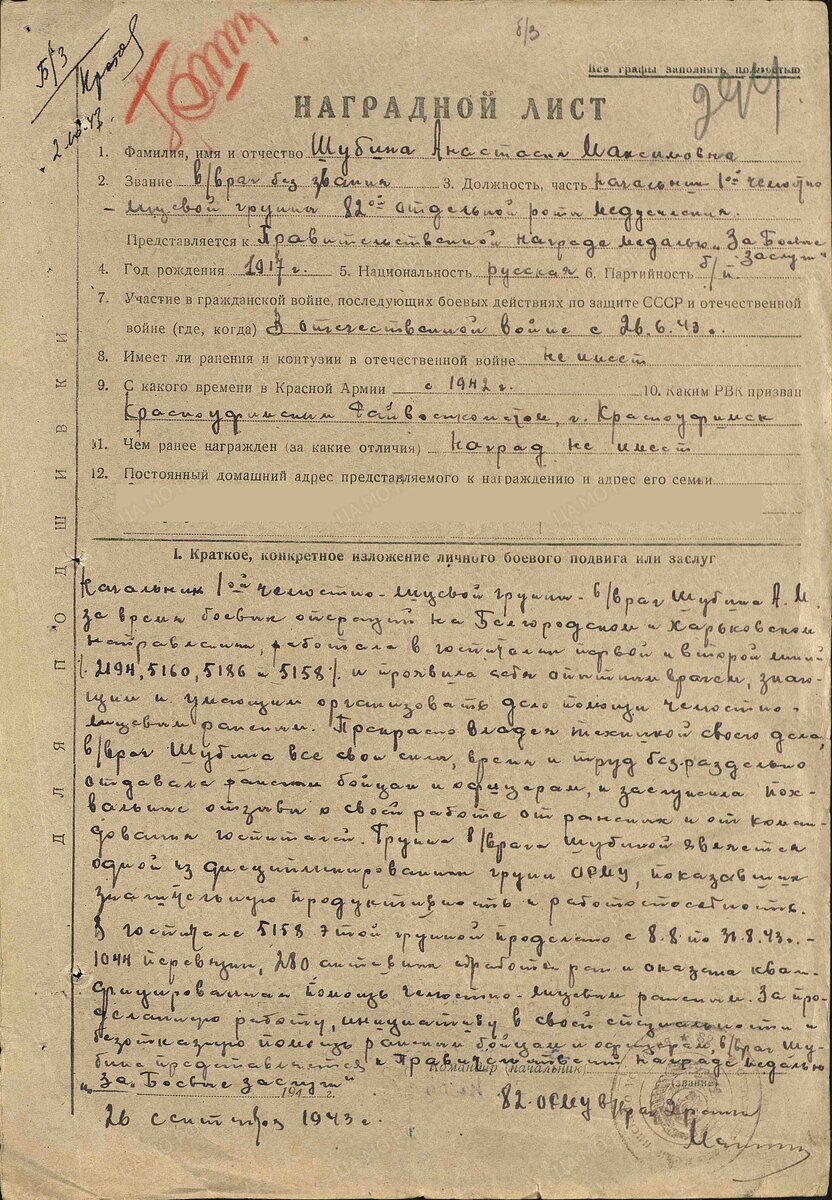 б/з
Б/З
2.10.43.
Все графы заполнять полностью
НАГРАДНОЙ ЛИСТ
1. Фамилия, имя и отчество Шубина Анастасия Максимовна
2. Звание в/врач без звания 3. Должность, часть начальник 1ой челюстно
- лицевой группы 82ой отдельной роты медусиления.
Представляется к Правительственной награде медалью „За Боевые
заслуги“
4. Год рождения 1917 г. 5. Национальность русская 6. Партийность б/п.
7. Участие в гражданской войне, последующих боевых действиях по защите СССР и отечественной
войне (где, когда) В отечественной войне с 26.6.43 г.
8. Имеет ли ранения и контузии в отечественной войне не имеет
9. С какого времени в Красной Армии с 1942 г. 10. Каким РВК призван
Красноуфимским Райвоенкоматом, г. Красноуфимск
11. Чем ранее награжден (за какие отличия) наград не имеет
12. Постоянный домашний адрес представляемого к награждению и адрес его семьи
ДЛЯ ПОДШИВКИ
I. Краткое, конкретное изложение личного боевого подвига или заслуг
Начальник 1ой челюстно-лицевой группы - в/врач Шубина А. М.
за время боевых операций на Белгородском и Харьковском
направлении, работала в госпитали первой и второй линии
/. 2194, 5160, 5186 и 5158 /. и проявила себя опытным врачом, знаю-
щим и умеющим организовать дело помощи челюстно-
лицевым раненым. Прекрасно владея техникой своего дела,
в/врач Шубина все свои силы, время и труд безраздельно
отдавала раненым бойцам и офицерам, и заслужила пох-
вальные отзывы о своей работе от раненых и от коман-
дования госпиталей. Группа в/врача Шубиной является
одной из дисциплинированных групп ОРМУ, показавших
значительную продуктивность и работоспособность.
В госпитале 5158 этой группой проделано с 8.8 по 31.8.43г. -
1044 перевязки, 280 активных обработок ран и оказана квали-
фицированная помощь челюстно-лицевым раненым. За про-
деланную работу, инициативу в своей специальности и
безотказную помощь раненым бойцам и офицерам в/врач Шу-
бина представляется к Правительственной награде медалью
„За Боевые заслуги“
Командир (начальник)
(звание)
194 г.
82 ОРМУ в/врач
26 сентября 1943 г.